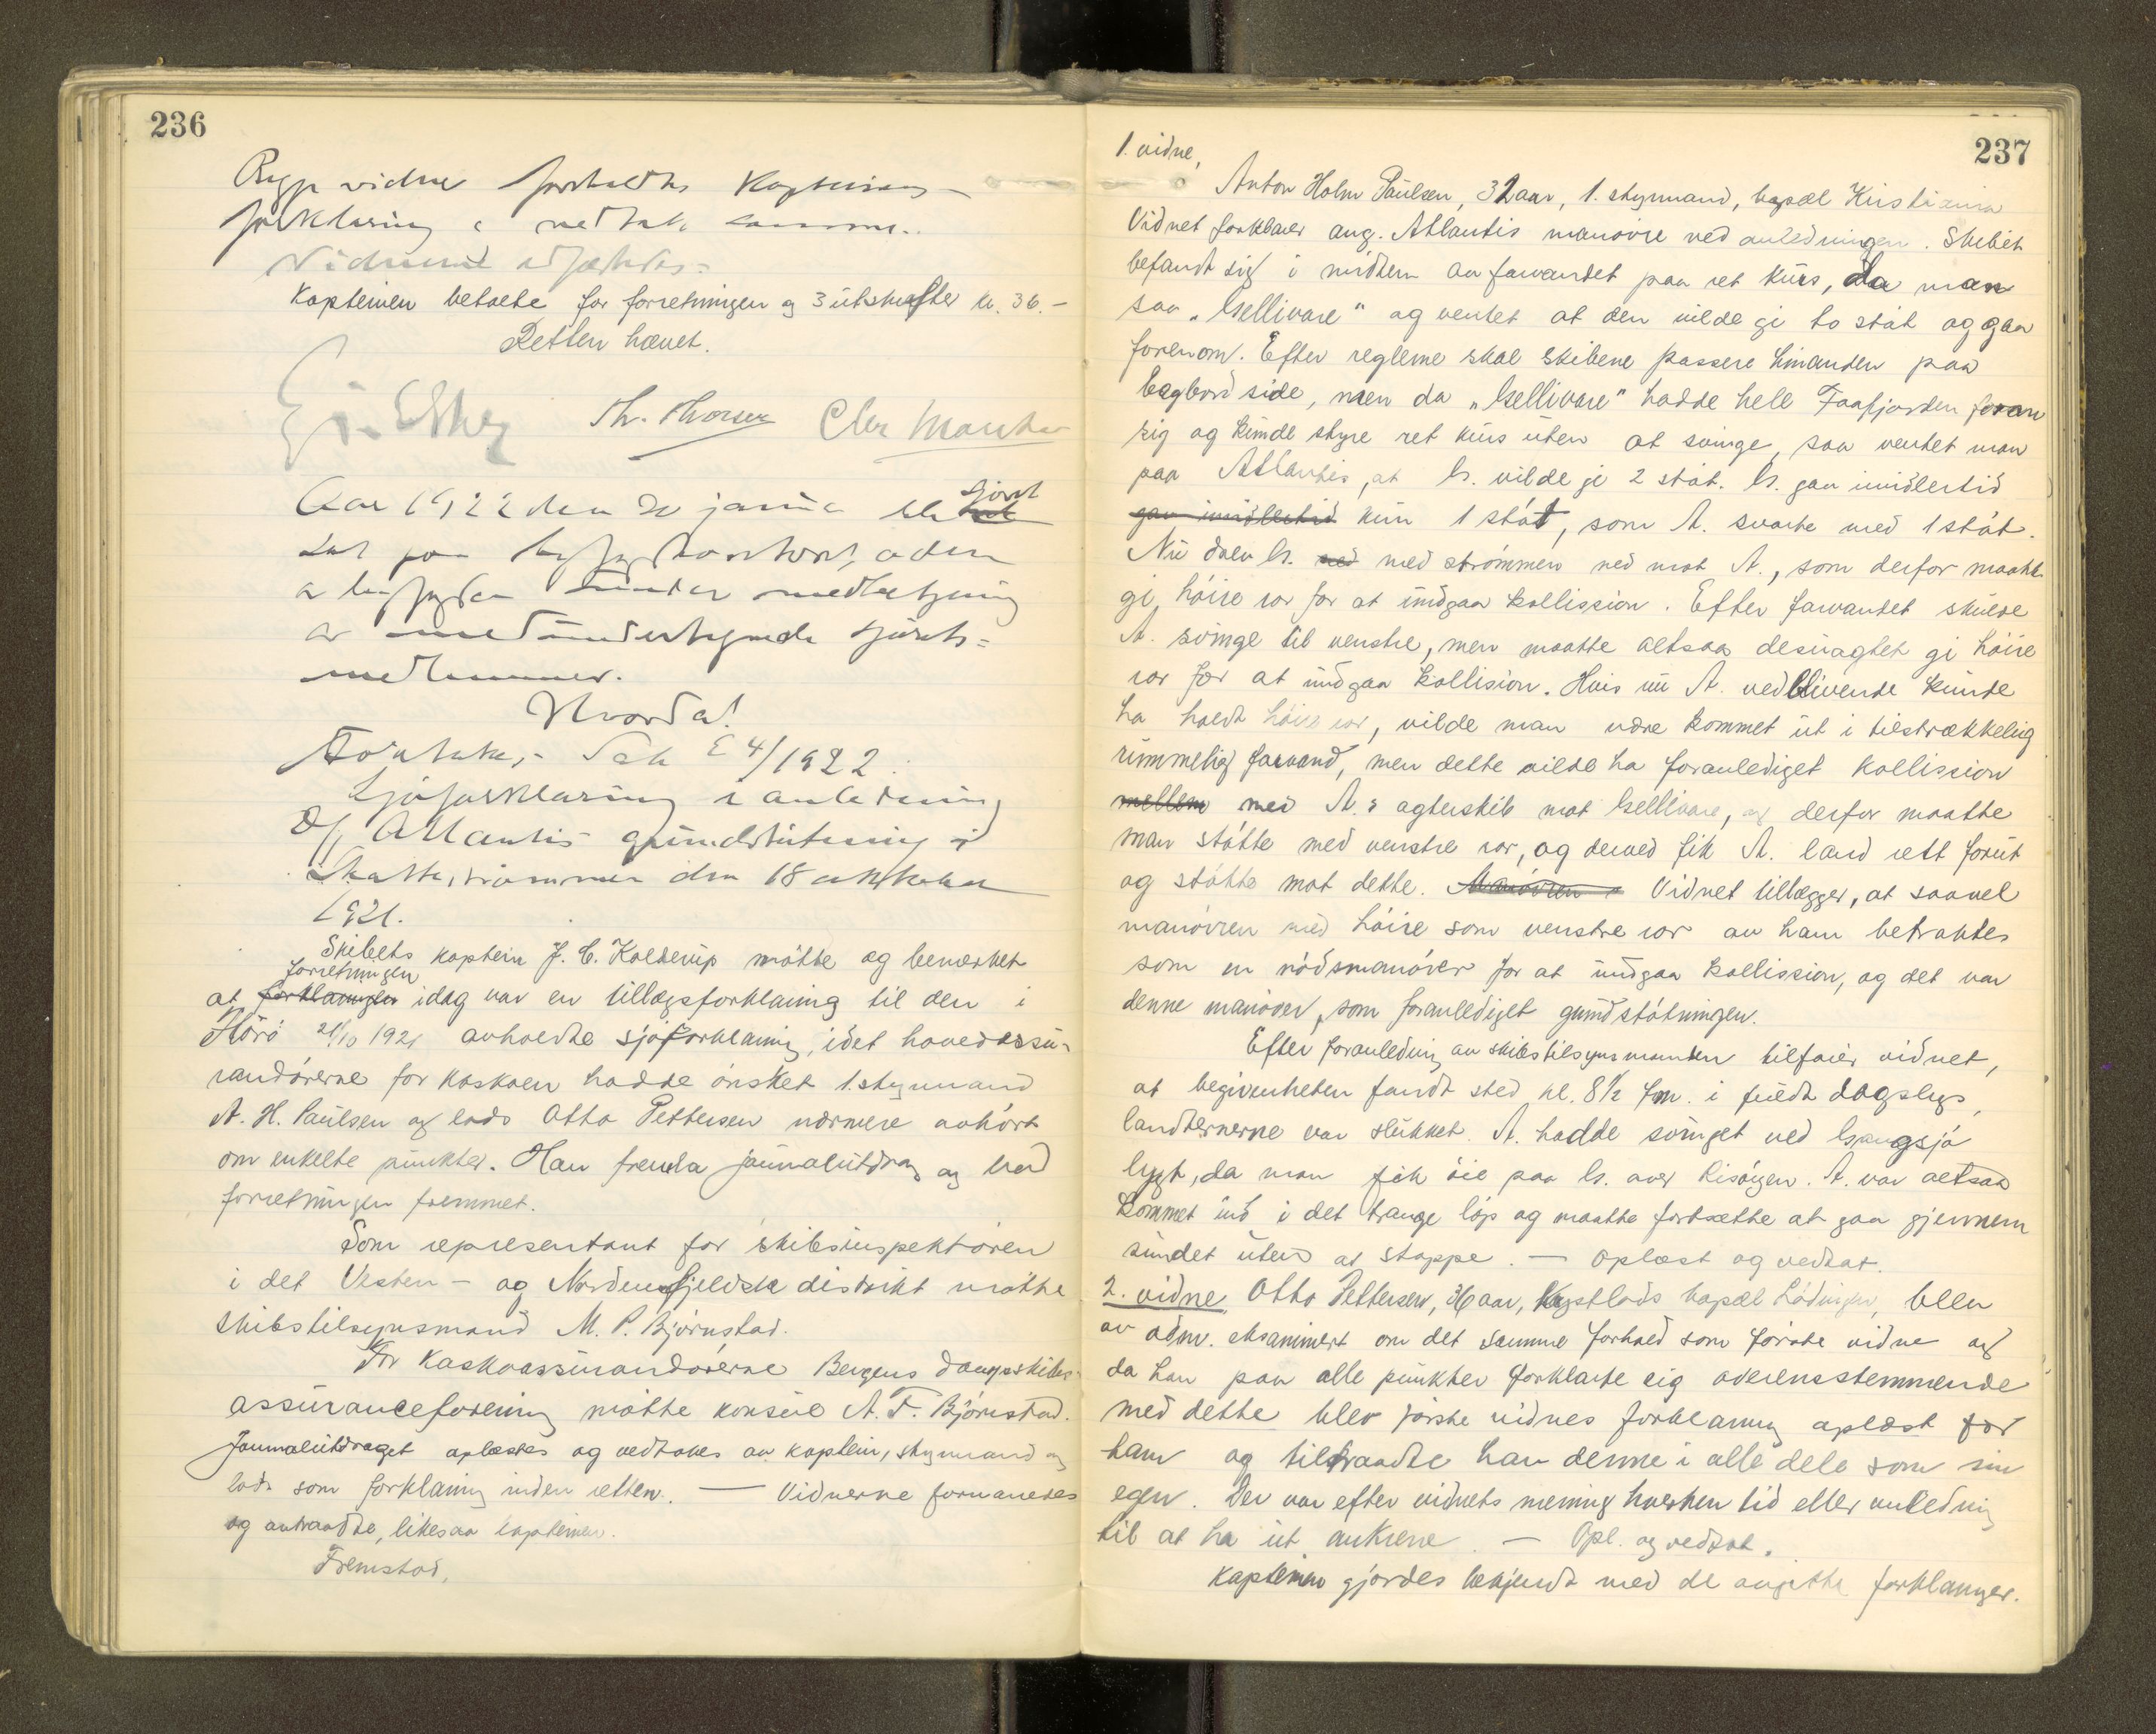 236
Begge vidner forholdtes Kapteinens
forklaring & vedtok samme.
Vidnerne edfæstedes.
Kapteinen betalte for forretningen og 3 utskrifter kr. 36.-
Retten hævet.
Th. Thorsen
Aar 1922 den 20 januar blev sjøret
sat paa byfogdkontoret, adm
av byfogden under medbetjening
av medundertegnede sjørets=
medlemmer.
Hvorda!
Foretokes,- Sak E 4/1922.
Sjøforklaring i anledning
D/S Atlantis grundstøtning i
den 18 oktober
1921.
Skibets kaptein J. C. Kolderup møtte og bemerket
at forklaringen forretningen idag var en tillægsforklaring til den i
21/10 1921 avholdte sjøforklaring, idet hovedassu-
randørerne for kaskoen hadde ønsket 1. styrmand
A. H. Paulsen og lods Otto Pettersen nærmere avhørt
om enkelte punkter. Han fremla journalutdrag og bad
forretningen fremmet.
Som representant for skibsinspektøren
i det Vesten- og Nordenfjeldske distrikt møtte
skibstilsynsmand M. P. Bjørnstad.
For Kaskoassurandørerne Bergens Dampskibs-
assuranceforening møtte konsul A. F. Bjørnstad.
Journalutdraget oplæstes og vedtokes av kaptein, styrmand og
lods som forklaring inden retten. — Vidnerne formanedes
og antraadte, likesaa kapteinen.
Fremstod,
237
1. vidne,
Anton Holm Paulsen, 32 aar, 1. styrmand, bopæl Kristiania
Vidnet forklarer ang. Atlantis manøvre ved anledningen. Skibet
befandt sig i midten av farvandet paa ret kurs, da man
saa „Gellivare" og ventet at den vilde gi to støt og gaa
forenom. Efter reglerne skal skibene passere hinanden paa
bagbord side, men da „Gellivare" hadde hele Faafjorden foran
sig og kunde styre ret kurs uten at svinge, saa ventet man
paa Atlantis, at G. vilde gi 2 støt. G. gav imidlertid
gav imidlertid kun 1 støt, som A. svarte med 1 støt.
Nu drev G. ned med strømmen ned mot A., som derfor maatte
gi høire ror for at undgaa kollission. Efter farvandet skulde
A. svinge til venstre, men maatte altsaa desuagtet gi høire
ror for at undgaa kollision. Hvis nu A. vedblivende kunde
ha holdt høire ror, vilde man være kommet ut i tilstrækkelig
rummelig farvand, men dette vilde ha foranlediget kollission
mellem med A.s agterskib mot Gellivare, og derfor maatte
man støtte med venstre ror, og derved fik A. land rett forut
og støtte mot dette. Manøvren Vidnet tillægger, at saavel
manøvren med høire som venstre ror av ham betraktes
som en nødsmanøver for at undgaa kollission, og det var
denne manøver, som foranlediget grundstøtningen.
Efter foranledning av skibstilsynsmanden tilføier vidnet,
at begivenheten fandt sted kl. 8½ fm. i fuldt dagslys,
landternerne var slukket. A. hadde svinget ved Gangsjø
lygt, da man fik øie paa G. over Risøigen. A. var altsaa
kommet ind i det trange løp og maatte fortsætte at gaa gjennem
sundet uten at stoppe. — Oplæst og vedtat.
2. vidne Otto Pettersen, 36 aar, Kystlods bopæl Lødingen, blev
av adm. eksaminert om det samme forhold som første vidne og
da han paa alle punkter forklarte sig overensstemmende
med dette blev første vidnes forklaring oplæst for
ham og tiltraadte han denne i alle dele som sin
egen. Der var efter vidnets mening hverken tid eller anledning
til at ha ut ankrene. — Opl. og vedtat.
Kapteinen gjordes bekjendt med de avgitte forklaringer.